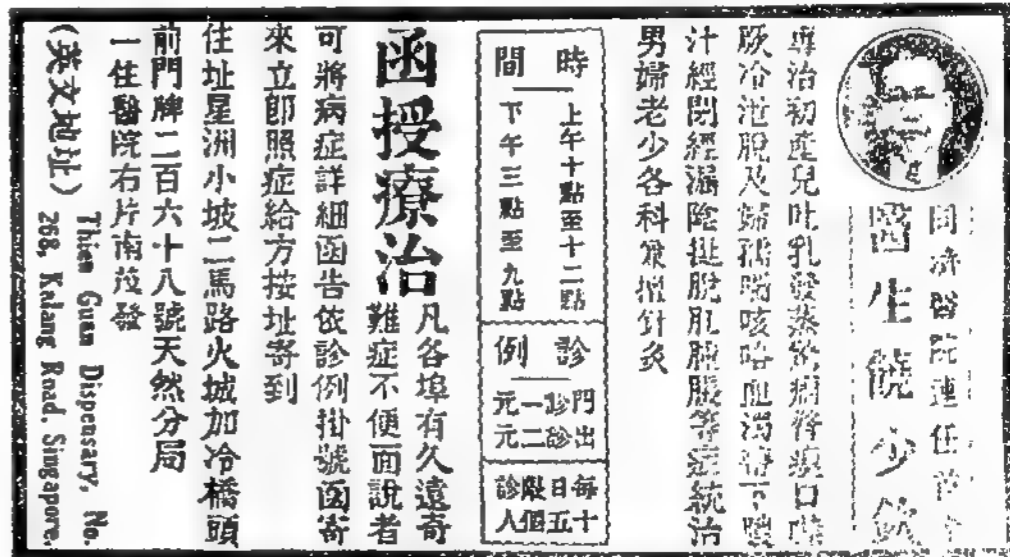 同濟醫院連任
醫生饒少
專治初產兒吐乳發
厥冷泄脫及婦孺喘咳咯血濁帶下
汁經閉經漏陰挺脫肛腫脹等症統治
男婦老少各科兼擅針灸
時間
上午十點至十二點
下午三點至九點
診例
門診一元
出診二元
每日限診
十五個人
函授療治
凡各埠有久遠奇
難症不便面說者
可將病症詳細函告依診例掛號函寄
來立即照症給方按址寄到
住址星洲小坡二馬路火城加冷橋頭
前門牌二百六十八號天然分局
一住醫院右片南茂發
(英文地址)
Thien Guan Dispensary, No.
268, Kalang Road, Singapore.